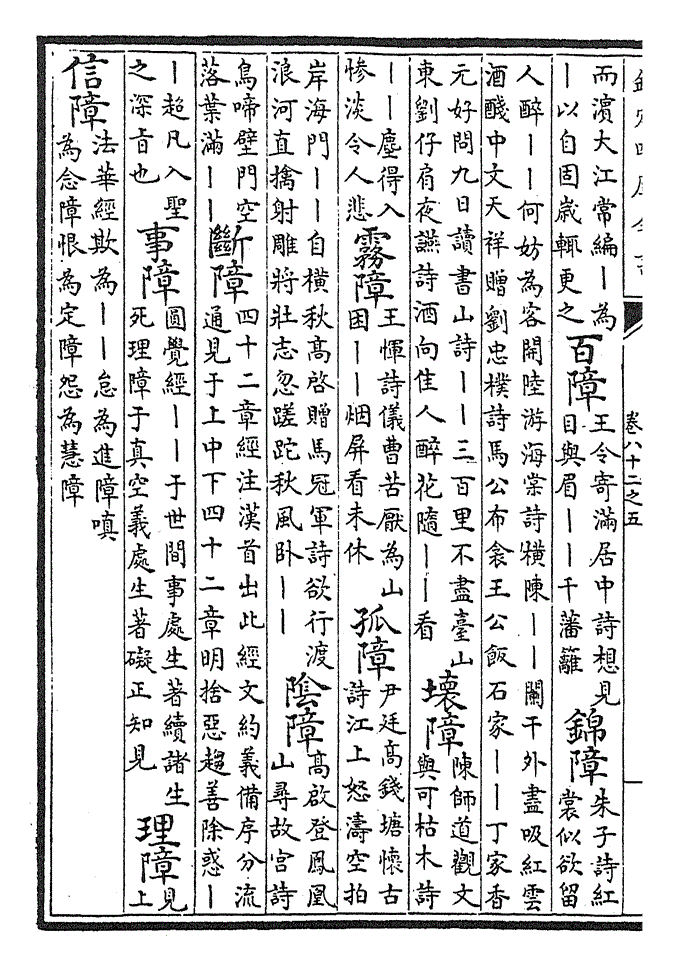 卷八十二之五
而濱大江常編丨為
丨以自固歲輒更之
百障
王令寄滿居中詩想見
目與眉丨丨千藩籬
錦障
朱子詩紅
裳似欲留
人醉丨丨何妨為客開陸游海棠詩橫陳丨丨闌干外盡吸紅雲
酒醆中文天祥贈劉忠樸詩馬公布衾王公飯石家丨丨丁家香
元好問九日讀書山詩丨丨三百里不盡臺山
東劉仔肩夜讌詩酒向佳人醉花隨丨丨看
壞障
陳師道觀文
與可枯木詩
丨丨塵得入
慘淡令人悲
霧障
王惲詩儀曹苦厭為山
困丨丨烟屏看未休
孤障
尹廷高錢塘懷古
詩江上怒濤空拍
岸海門丨丨自橫秋高啓贈馬冠軍詩欲行渡
浪河直擒射雕將壯志忽蹉跎秋風卧丨丨
陰障
高啟登鳳凰
山尋故宮詩
鳥啼壁門空
落葉滿丨丨
斷障
四十二章經注漢首出此經文約義備序分流
通見于上中下四十二章明捨惡趨善除惑丨
丨超凡入聖
之深旨也
事障
圓覺經丨丨于世間事處生著續諸生
死理障于真空義處生著礙正知見
理障
見
上
信障
法華經欺為丨丨怠為進障嗔
為念障恨為定障怨為慧障